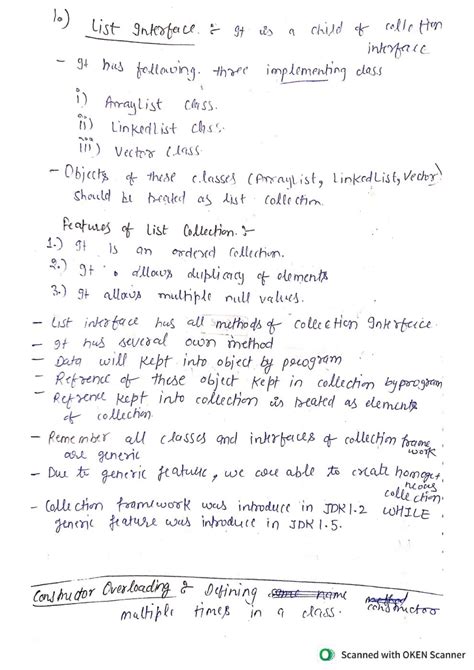 1.) List Interface :- It is a child of collection
interface
- It has following three implementing class
i) ArrayList Class.
ii) LinkedList Class.
iii) Vector Class
- Objects of these classes (ArrayList, LinkedList, Vector)
should be treated as list collection.
Features of List Collection :-
1.) It is an ordered collection.
2.) It allows duplicacy of elements
3.) It allows multiple null values.
- List interface has all methods of collection Interface.
- It has several own method
- Data will kept into object by program
- Refrence of these object kept in collection by program
- Refrence kept into collection is treated as elements
of collection.
- Remember all classes and interfaces of collection frame
work
are generic
- Due to generic feature, we are able to create homoge
neous
collection.
- Collection framework was introduce in JDK 1.2 WHILE
generic feature was introduce in JDK 1.5.
Constructor Overloading : Defining same name method constructor
multiple times in a class.
Scanned with OKEN Scanner